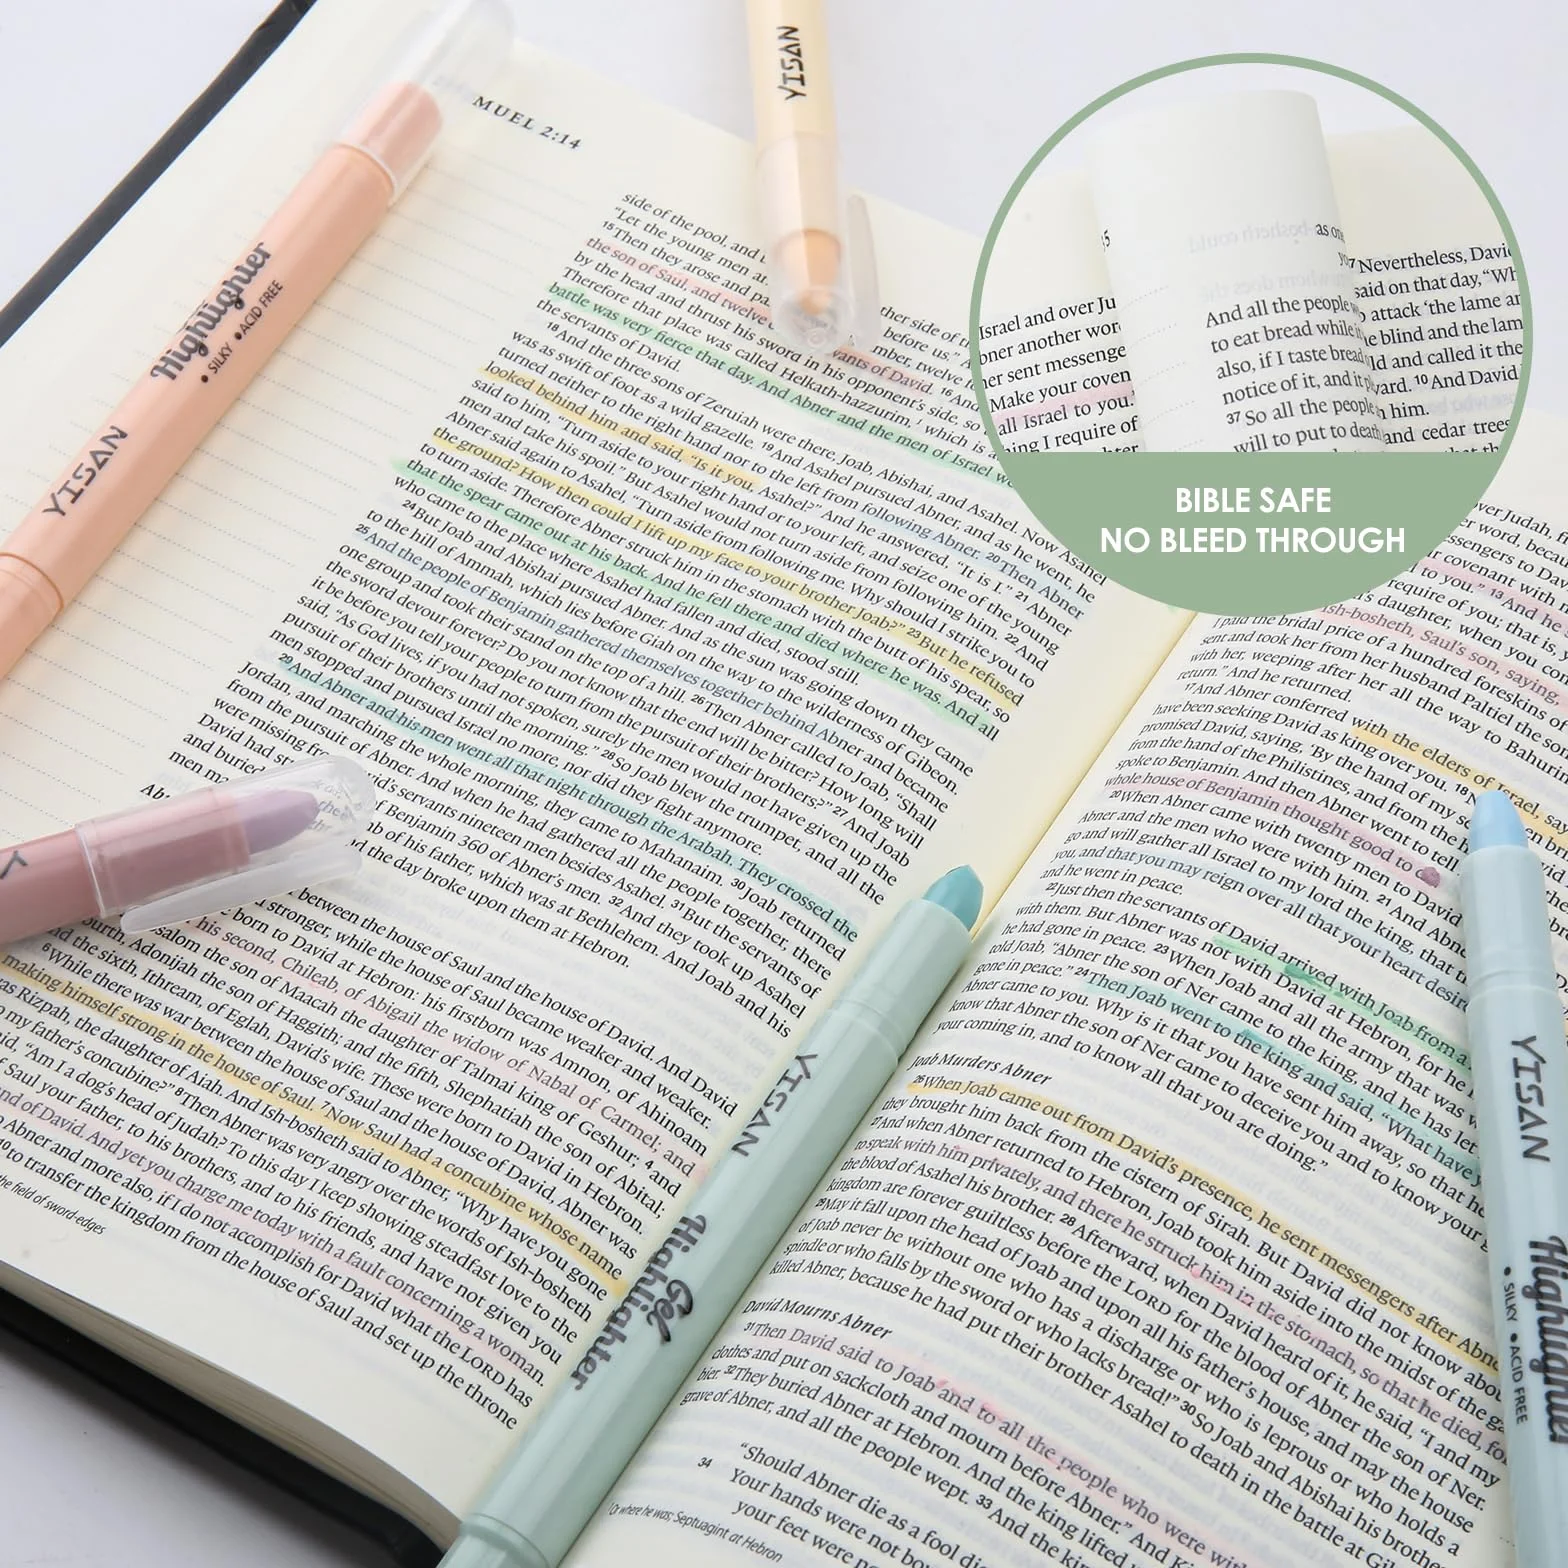 MUEL 2:14
side of the pool, and t
"Let the young men at
¹⁵Then they arose and pa
the son of Saul, and twelve
by the head and thrust his sword in his opponent's side, so
Therefore that place was called Helkath-hazzurim, which is
battle was very fierce that day. And Abner and the men of Israel
the servants of David.
¹⁸And the three sons of Zeruiah were there, Joab, Abishai, and Asahel. Now Asahel
was as swift of foot as a wild gazelle. ¹⁹And Asahel pursued Abner, and as he went, he
turned neither to the right hand nor to the left from following Abner. ²⁰Then Abner
looked behind him and said, "Is it you, Asahel?" And he answered, "It is I." ²¹Abner
said to him, "Turn aside to your right hand or to your left, and seize one of the young
men and take his spoil." But Asahel would not turn aside from following him. ²²And
Abner said again to Asahel, "Turn aside from following me. Why should I strike you to
the ground? How then could I lift up my face to your brother Joab?" ²³But he refused
to turn aside. Therefore Abner struck him in the stomach with the butt of his spear, so
that the spear came out at his back. And he fell there and died where he was. And all
who came to the place where Asahel had fallen and died, stood still.
²⁴But Joab and Abishai pursued Abner. And as the sun was going down they came
to the hill of Ammah, which lies before Giah on the way to the wilderness of Gibeon.
²⁵And the people of Benjamin gathered themselves together behind Abner and became
one group and took their stand on the top of a hill. ²⁶Then Abner called to Joab, "Shall
the sword devour forever? Do you not know that the end will be bitter? How long will
it be before you tell your people to turn from the pursuit of their brothers?" ²⁷And Joab
said, "As God lives, if you had not spoken, surely the men would not have given up the
pursuit of their brothers until the morning." ²⁸So Joab blew the trumpet, and all the
men stopped and pursued Israel no more, nor did they fight anymore.
²⁹And Abner and his men went all that night through the Arabah. They crossed the
Jordan, and marching the whole morning, they came to Mahanaim. ³⁰Joab returned
from the pursuit of Abner. And when he had gathered all the people together, there
were missing from David's servants nineteen men besides Asahel. ³¹But the servants of
David had str of Benjamin 360 of Abner's men. ³²And they took up Asahel
and buried of his father, which was at Bethlehem. And Joab and his
men ma d the day broke upon them at Hebron.
between the house of Saul and the house of David. And David
stronger, while the house of Saul became weaker and weaker.
born to David at Hebron: his firstborn was Amnon, of Ahinoam
his second, Chileab, of Abigail the widow of Nabal of Carmel; and
salom the son of Maacah the daughter of Talmai king of Geshur; ⁴and
ourth, Adonijah the son of Haggith; and the fifth, Shephatiah the son of Abital;
the sixth, Ithream, of Eglah, David's wife. These were born to David in Hebron.
⁶While there was war between the house of Saul and the house of David, Abner was
making himself strong in the house of Saul. ⁷Now Saul had a concubine whose name
as Rizpah, the daughter of Aiah. And Ish-bosheth said to Abner, "Why have you gone
my father's concubine?" ⁸Then Abner was very angry over the words of Ish-bosheth
said, "Am I a dog's head of Judah? To this day I keep showing steadfast love to the
of Saul your father, to his brothers, and to his friends, and have not given you
nd of David. And yet you charge me today with a fault concerning a woman.
Abner and more also, if I do not accomplish for David what the LORD has
¹⁰to transfer the kingdom from the house of Saul and set up the throne
the field of sword-edges
ther side of
before us." A
mber, twelve
vants of David. ¹⁶And
YISAN
Highlighter
• SILKY • ACID FREE
YISAN
YISAN
Gel
Highlighter
YISAN
Highlighter
• SILKY • ACID FREE
Israel and over Ju
bner another wor
ner sent messenge
Make your coven
all Israel to you.'
hing I require of
as on
And all the people
to eat bread while
also, if I taste bread
notice of it, and it pl
³⁷So all the people
will to put to death
⁷Nevertheless, Davi
said on that day, "Wh
attack 'the lame an
e blind and the lam
ld and called it the
ard. ¹⁰And David
him.
and cedar trees
BIBLE SAFE
NO BLEED THROUGH
ish-bosheth, Saul's son, saying,
I paid the bridal price of a hundred foreskins of
sent and took her from her husband Paltiel the so
with her, weeping after her all the way to Bahurim
return." And he returned.
¹⁷And Abner conferred with the elders of Israel, say
have been seeking David as king over you. ¹⁸N
promised David, saying, 'By the hand of my se
from the hand of the Philistines, and from the h
spoke to Benjamin. And then Abner went to tell
whole house of Benjamin thought good to
²⁰When Abner came with twenty men to David
Abner and the men who were with him. ²¹And Abne
go and will gather all Israel to my lord the king, that th
you, and that you may reign over all that your heart desir
and he went in peace.
²²Just then the servants of David arrived with Joab from a
with them. But Abner was not with David at Hebron, for he
he had gone in peace. ²³When Joab and all the army that was
told Joab, "Abner the son of Ner came to the king, and he has let
gone in peace." ²⁴Then Joab went to the king and said, "What have
Abner came to you. Why is it that you have sent him away, so that he
know that Abner the son of Ner came to deceive you and to know your g
your coming in, and to know all that you are doing."
Joab Murders Abner
²⁶When Joab came out from David's presence, he sent messengers after Abne
they brought him back from the cistern of Sirah. But David did not know abou
²⁷And when Abner returned to Hebron, Joab took him aside into the midst of the ga
to speak with him privately, and there he struck him in the stomach, so that he died, fo
the blood of Asahel his brother. ²⁸Afterward, when David heard of it, he said, "I and my
kingdom are forever guiltless before the LORD for the blood of Abner the son of Ner.
²⁹May it fall upon the head of Joab and upon all his father's house, and may the house
of Joab never be without one who has a discharge or who is leprous or who holds a
spindle or who falls by the sword or who lacks bread!" ³⁰So Joab and Abishai his brothe
killed Abner, because he had put their brother Asahel to death in the battle at Gi
David Mourns Abner
³¹Then David said to Joab and to all the people who were with
clothes and put on sackcloth and mourn before Abner." And K
bier. ³²They buried Abner at Hebron. And the king lifted
grave of Abner, and all the people wept. ³³And the
"Should Abner die as a fool die
³⁴ Your hands were not bo
your feet were no
Or where he was; Septuagint at Hebron